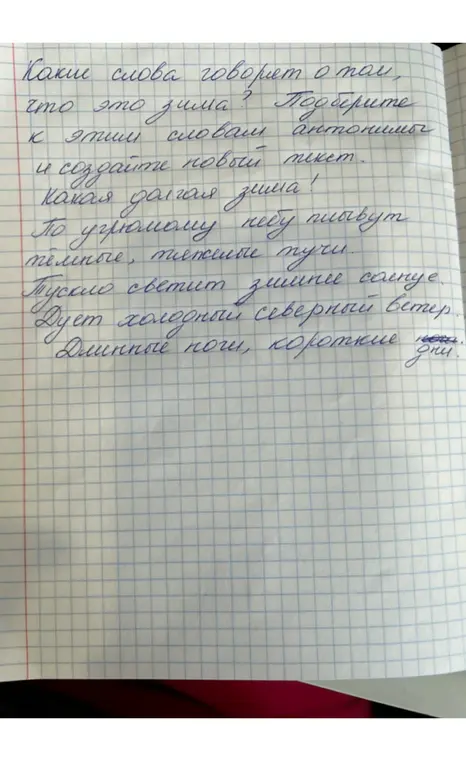 Какие слова говорят о том,
что это зима? Подберите
к этим словам антонимы
и создайте новый текст.
Какая долгая зима!
По угрюмому небу плывут
тёмные, тяжелые тучи.
Тускло светит зимнее солнце.
Дует холодный северный ветер.
Длинные ночи, короткие дни.